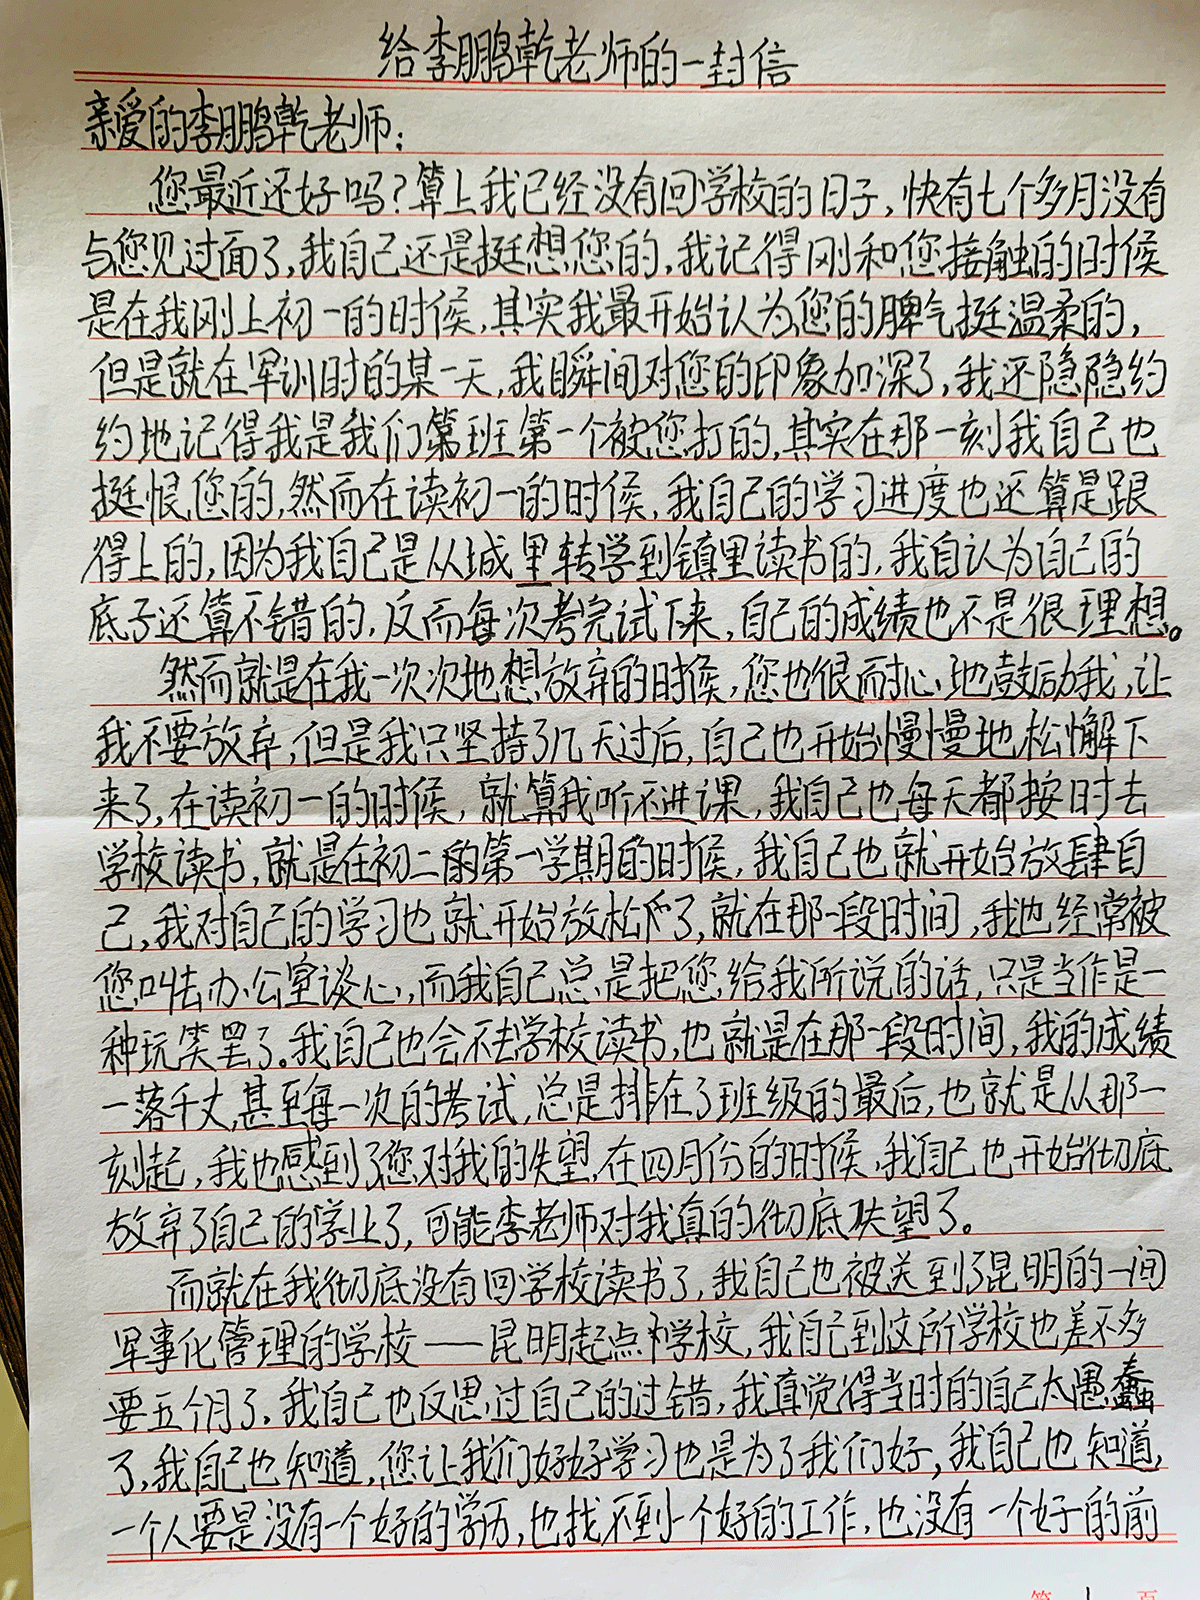 给李鹏乾老师的一封信
亲爱的李鹏乾老师：
您最近还好吗？算上我已经没有回学校的日子，快有七个多月没有
与您见过面了，我自己还是挺想您的，我记得刚和您接触的时候
是在我刚上初一的时候，其实我最开始认为您的脾气挺温柔的，
但是就在军训时的某一天，我瞬间对您的印象加深了，我还隐隐约
约地记得我是我们第班第一个被您打的，其实在那一刻我自己也
挺恨您的，然而在读初一的时候，我自己的学习进度也还算是跟
得上的，因为我自己是从城里转学到镇里读书的，我自认为自己的
底子还算不错的，反而每次考完试下来，自己的成绩也不是很理想。
然而就是在我一次次地想放弃的时候，您也很耐心地鼓励我，让
我不要放弃，但是我只坚持了几天过后，自己也开始慢慢地松懈下
来了，在读初一的时候，就算我听不进课，我自己也每天都按时去
学校读书，就是在初二的第一学期的时候，我自己也就开始放肆自
己，我对自己的学习也就开始放松了，就在那一段时间，我也经常被
您叫去办公室谈心，而我自己总是把您给我所说的话，只是当作是一
种玩笑罢了。我自己也会不去学校读书，也就是在那一段时间，我的成绩
一落千丈，甚至每一次的考试，总是排在了班级的最后，也就是从那一
刻起，我也感到了您对我的失望，在四月份的时候，我自己也开始彻底
放弃了自己的学业了，可能李老师对我真的彻底失望了。
而就在我彻底没有回学校读书了，我自己也被送到了昆明的一间
军事化管理的学校——昆明起点学校，我自己到这所学校也差不多
要五个月了，我自己也反思过自己的过错，我真觉得当时的自己太愚蠢
了，我自己也知道，您让我们好好学习也是为了我们好，我自己也知道，
一个人要是没有一个好的学历，也找不到一个好的工作，也没有一个好的前
第1页